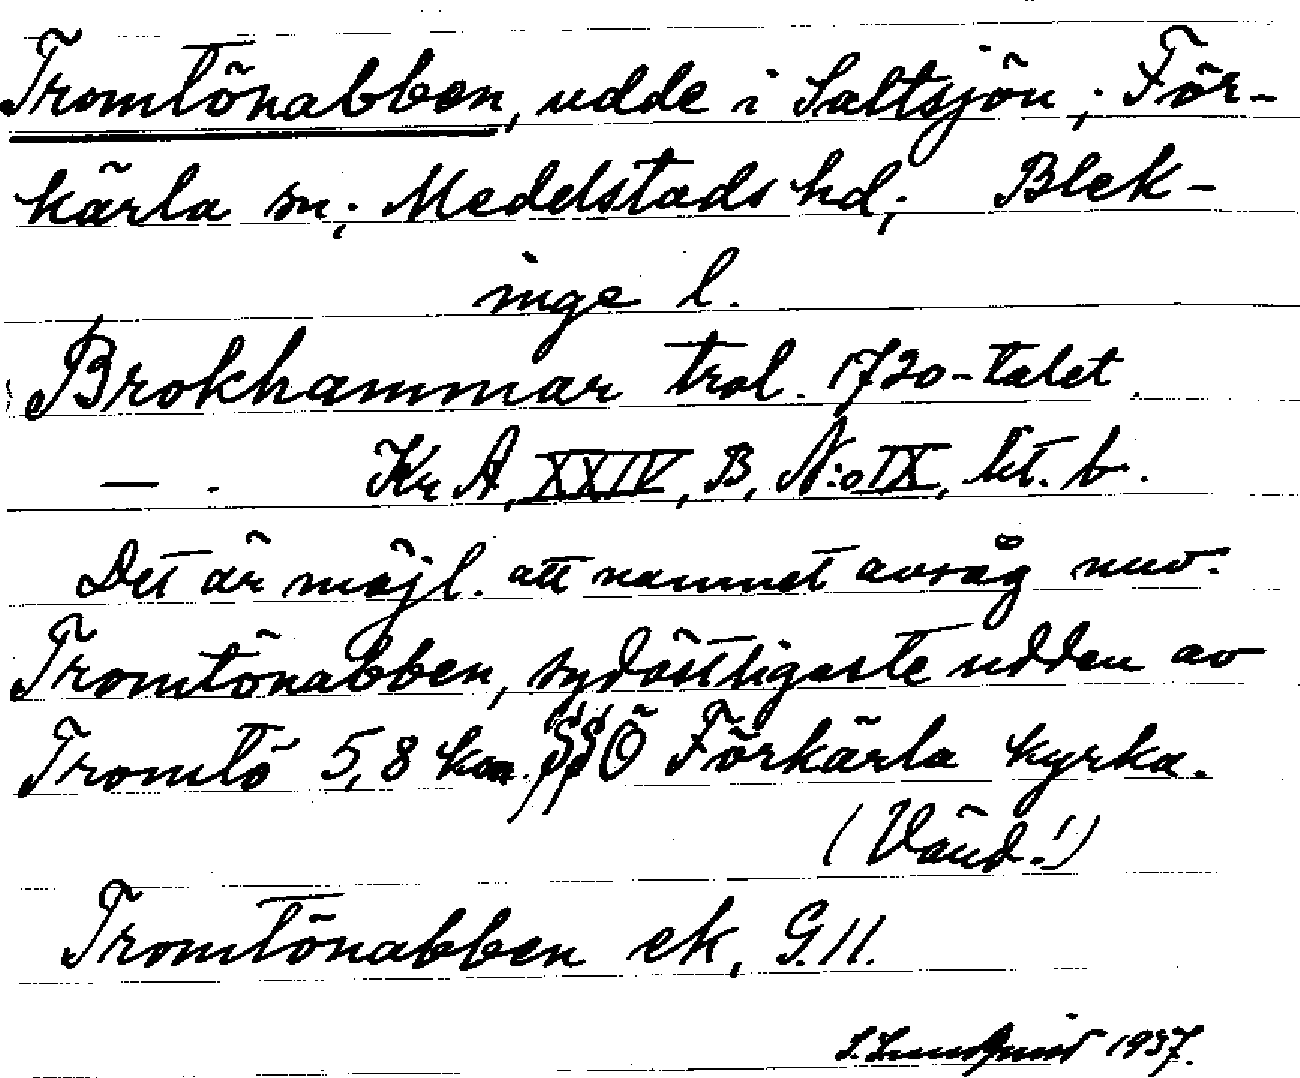 Tromtönabben, udde i Saltsjön; För-
kärla sn; Medelstads hd; Blek-
inge l.
Brokhammar trol. 1720-talet.
— . Kr A, XXIV, B, N:o IX, lit. b.
Det är möjl. att namnet avsåg nuv.
Tromtönabben, sydöstligaste udden av
Tromtö 5,8 km. SSÖ Förkärla kyrka.
(Vänd!)
Tromtönabben ek, G.11.
S. Lundqvist 1937.